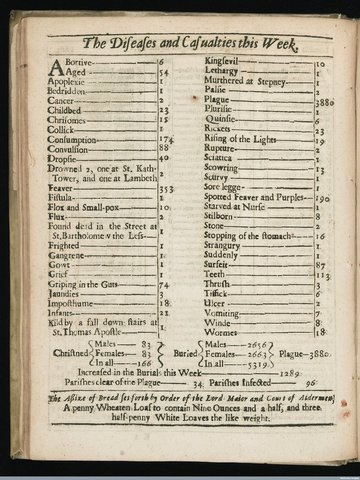 The Diseases and Casualties this Week.
Abortive 6
Aged 54
Apoplexie 1
Bedridden 1
Cancer 2
Childbed 23
Chrisomes 15
Collick 1
Consumption 174
Convulsion 88
Dropsie 40
Drowned 2, one at St. Kath-
Tower, and one at Lambeth 2
Feaver 353
Fistula 1
Flox and Small-pox 10
Flux 2
Found dead in the Street at
St. Bartholomew the Less 1
Frighted 1
Gangrene 1
Gowt 1
Grief 1
Griping in the Guts 74
Jaundies 3
Imposthume 18
Infants 21
Kild by a fall down stairs at
St. Thomas Apostle 1
Kingsevil 10
Lethargy 1
Murthered at Stepney 1
Palsie 2
Plague 3880
Plurisie 1
Quinsie 6
Rickets 23
Rising of the Lights 19
Rupture 2
Sciatica 1
Scowring 13
Scurvy 1
Sore legge 1
Spotted Feaver and Purples 190
Starved at Nurse 1
Stilborn 8
Stone 2
Stopping of the stomach 16
Strangury 1
Suddenly 1
Surfeit 87
Teeth 113
Thrush 3
Tissick 6
Ulcer 2
Vomiting 7
Winde 8
Wormes 18
Christned Males 83 Females 83 In all 166
Buried Males 2656 Females 2663 In all 5319
Plague 3880.
Increased in the Burials this Week 1289
Parishes clear of the Plague 34 Parishes Infected 96
The Assize of Bread set forth by Order of the Lord Maior and Court of Aldermen,
A penny Wheaten Loaf to contain Nine Ounces and a half, and three
half-penny White Loaves the like weight.